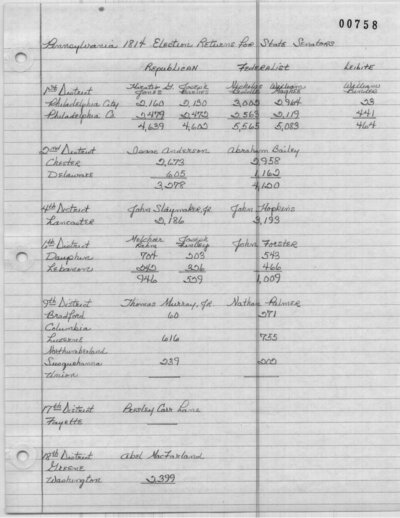 00758
Pennsylvania 1814 Election Returns for State Senators
Republican Federalist Leibite
1st District Horatio G. Jones Joseph Barnes Nicholas Biddle William Magee William Binder
Philadelphia City 2,160 2,130 3,002 2,964 23
Philadelphia Co. 2,479 2,472 2,563 2,119 441
4,639 4,602 5,565 5,083 464
2nd District Isaac Anderson Abraham Bailey
Chester 2,673 2,958
Delaware 605 1,162
3,278 4,120
4th District John Slaymaker, Jr. John Hopkins
Lancaster 2,186 3,193
6th District Melchior Rahm Joseph John Forster
Dauphin 704 203 543
Lebanon 242 336 466
946 539 1,009
9th District Thomas Murray, Jr. Nathan Palmer
Bradford 60 271
Columbia
Luzerne 616 755
Northumberland
Susquehanna 239 202
Union
17th District Presley Carr Lane
Fayette
18th District Abel MacFarland
Greene
Washington 2,399